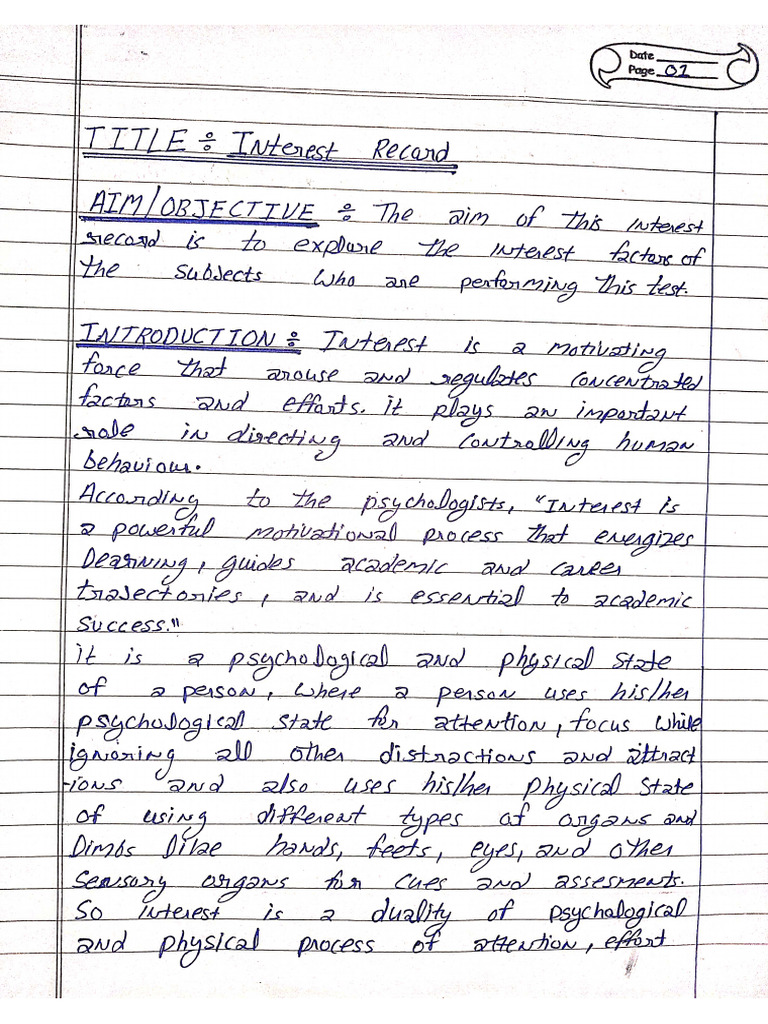 Date
Page 01
TITLE ÷ Interest Record
AIM/OBJECTIVE ÷ The aim of this interest
record is to explore the interest factors of
the subjects who are performing this test.
INTRODUCTION ÷ Interest is a motivating
force that arouse and regulates concentrated
factors and efforts. it plays an important
role in directing and controlling human
behaviour.
According to the psychologists, "Interest is
a powerful motivational process that energizes
learning, guides academic and career
trajectories, and is essential to academic
success."
it is a psychological and physical state
of a person, where a person uses his/her
psychological state for attention, focus while
ignoring all other distractions and attract
-ions and also uses his/her physical state
of using different types of organs and
limbs like hands, feets, eyes, and other
sensory organs for cues and assesments.
So interest is a duality of psychological
and physical process of attention, effort